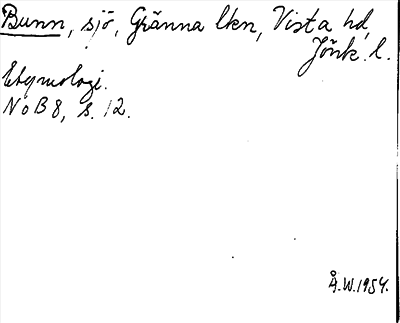 Bunn, sjö, Gränna lkn, Vista hd,
Jönk. l.
Etymologi.
NoB 8, s. 12.
Å.W. 1954.